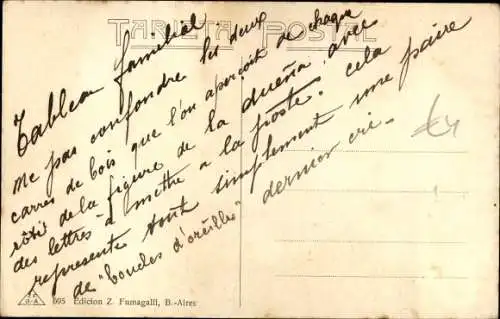 TARJETA POSTAL
Tableau familial
me pas confondre les deux
carrés de bois que l'on aperçoit de chaque
côté de la figure de la dueña, avec
des lettres à mettre à la poste. Cela
représente tout simplement une paire
de "boucles d'oreilles" dernier cri.
695 Edicion Z. Fumagalli, B.-Aires